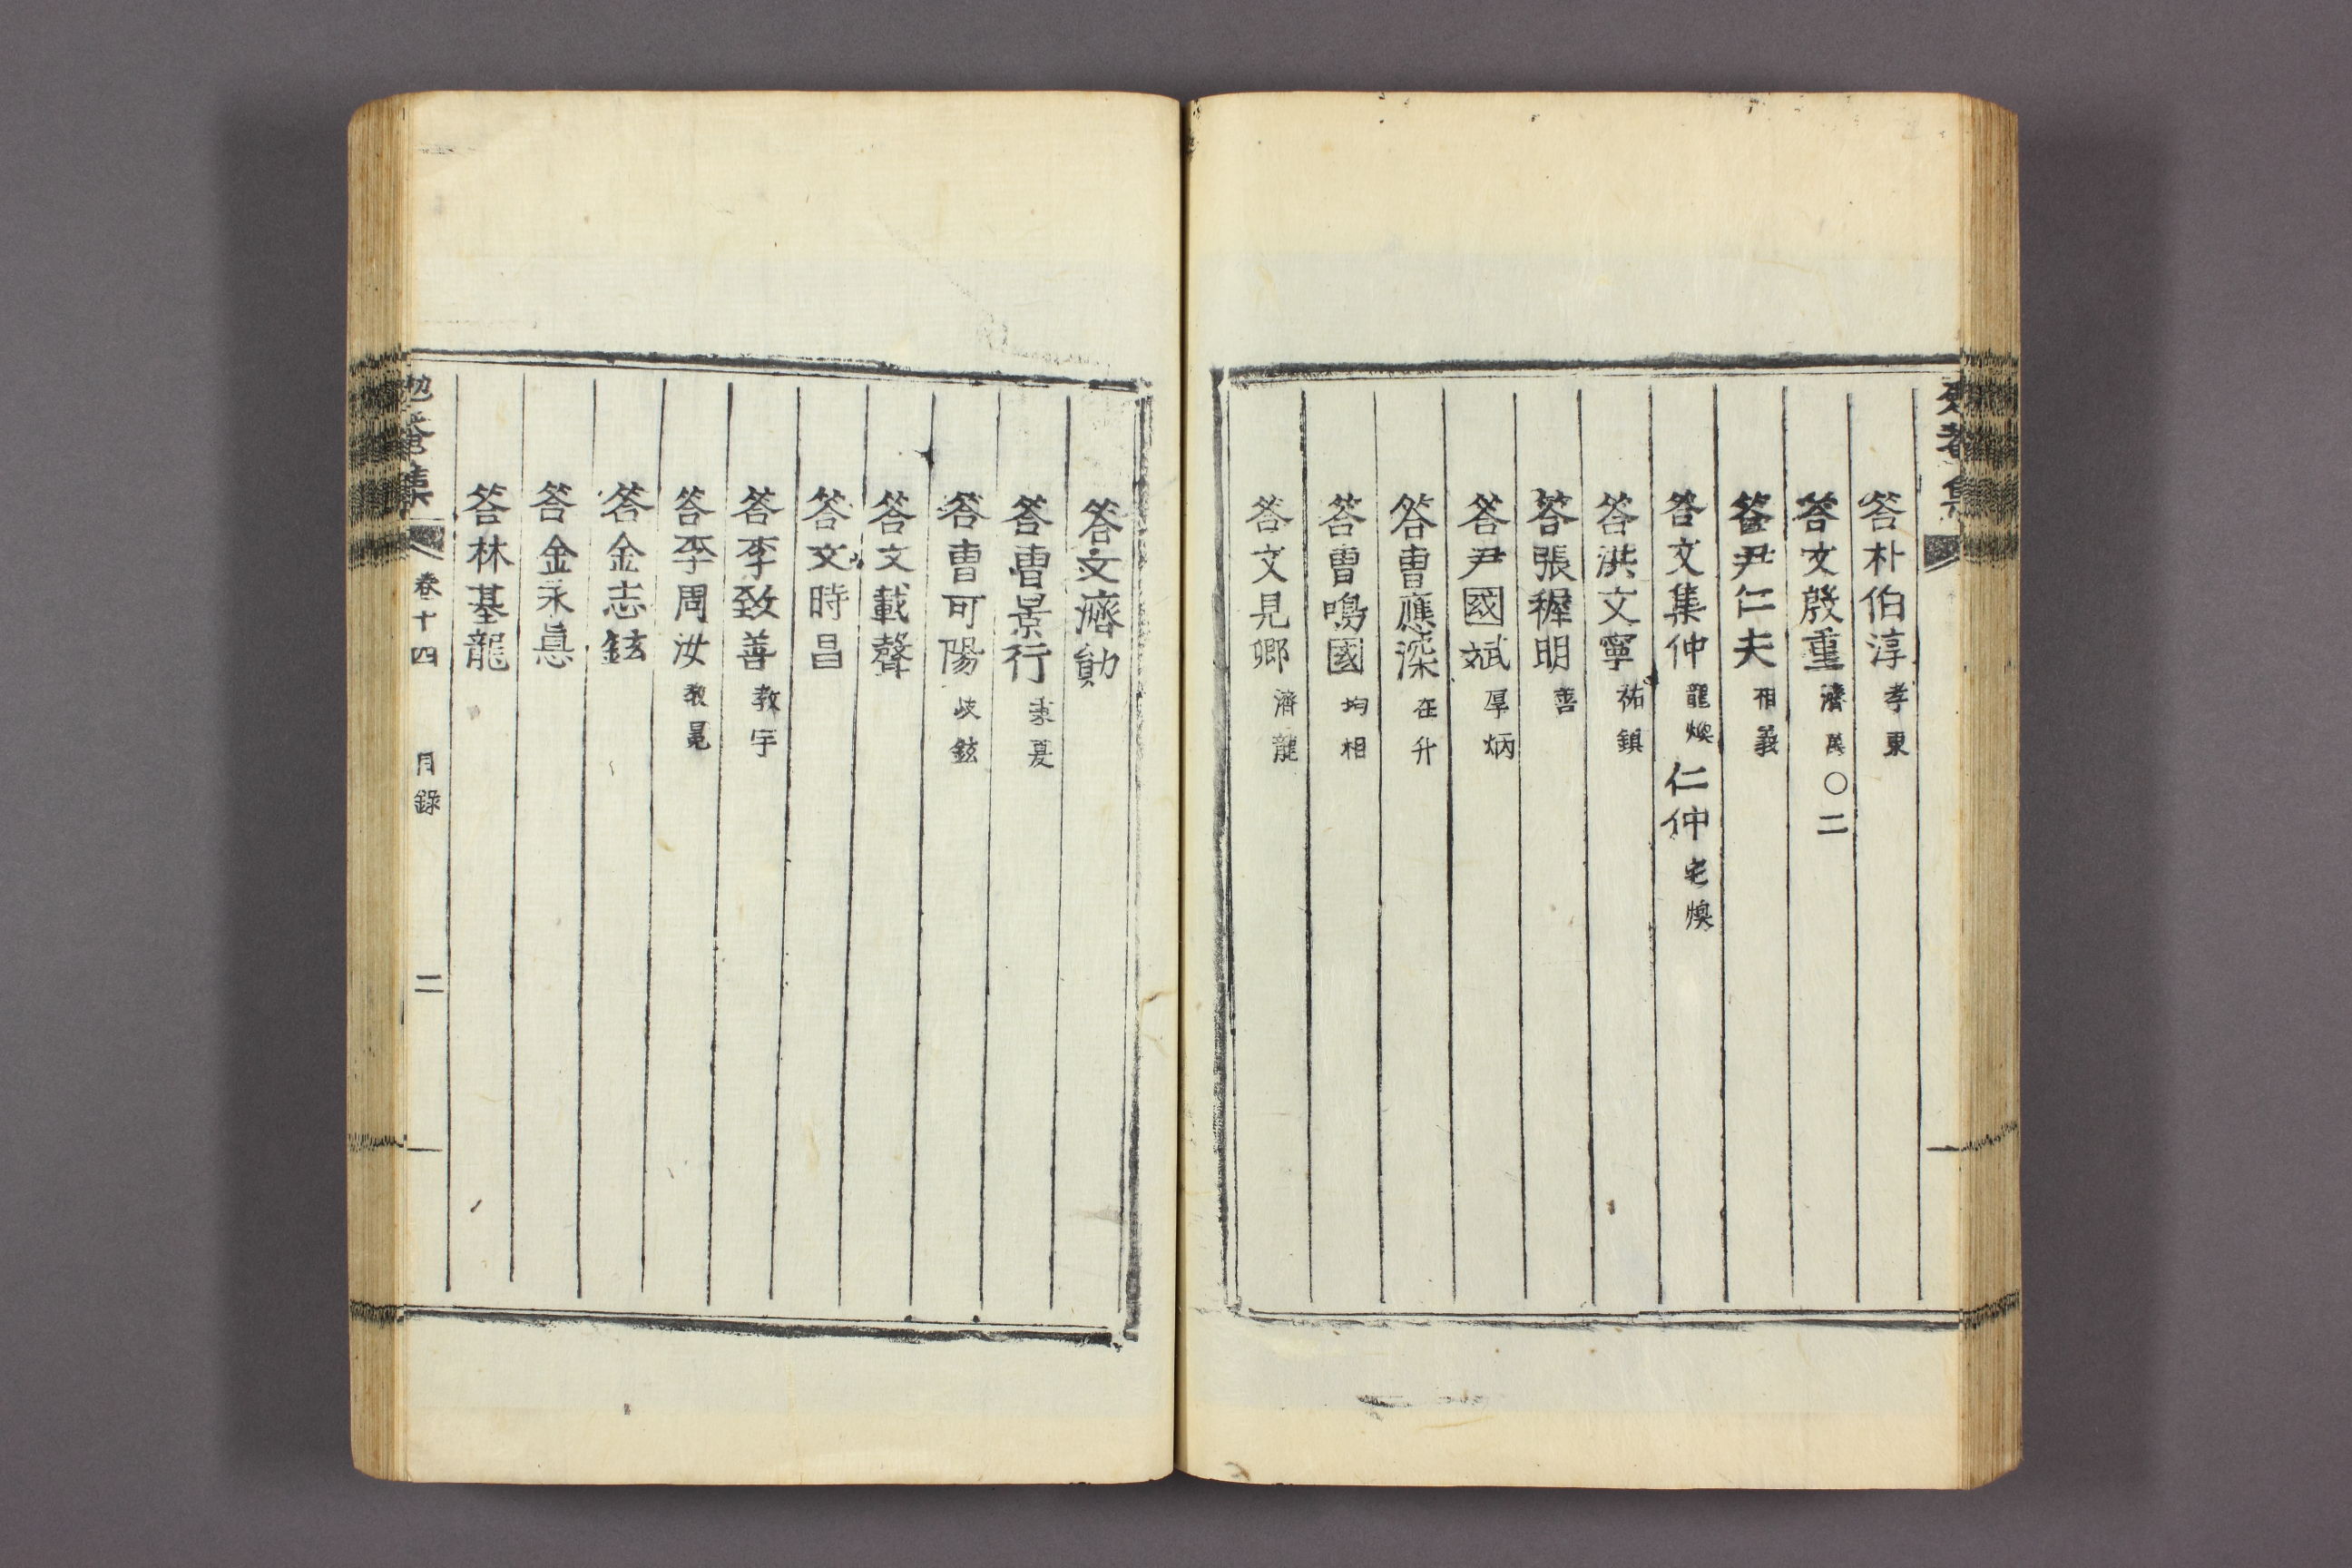 答朴伯淳孝東
答文殷重濟萬○二
答尹仁夫相義
答文集仲龍煥仁仲宅煥
答洪文寧祐鎮
答張稺明善
答尹國斌厚炳
答曺應深在升
答曺鳴國均相
答文見卿濟龍
答文濟勛
答曺景行秉夏
答曺可陽岐鉉
答文載聲
答文時昌
答李致善教宇
答李周汝教冕
答金志鉉
答金永悳
答林基龍
勉菴集 卷十四 目録 二